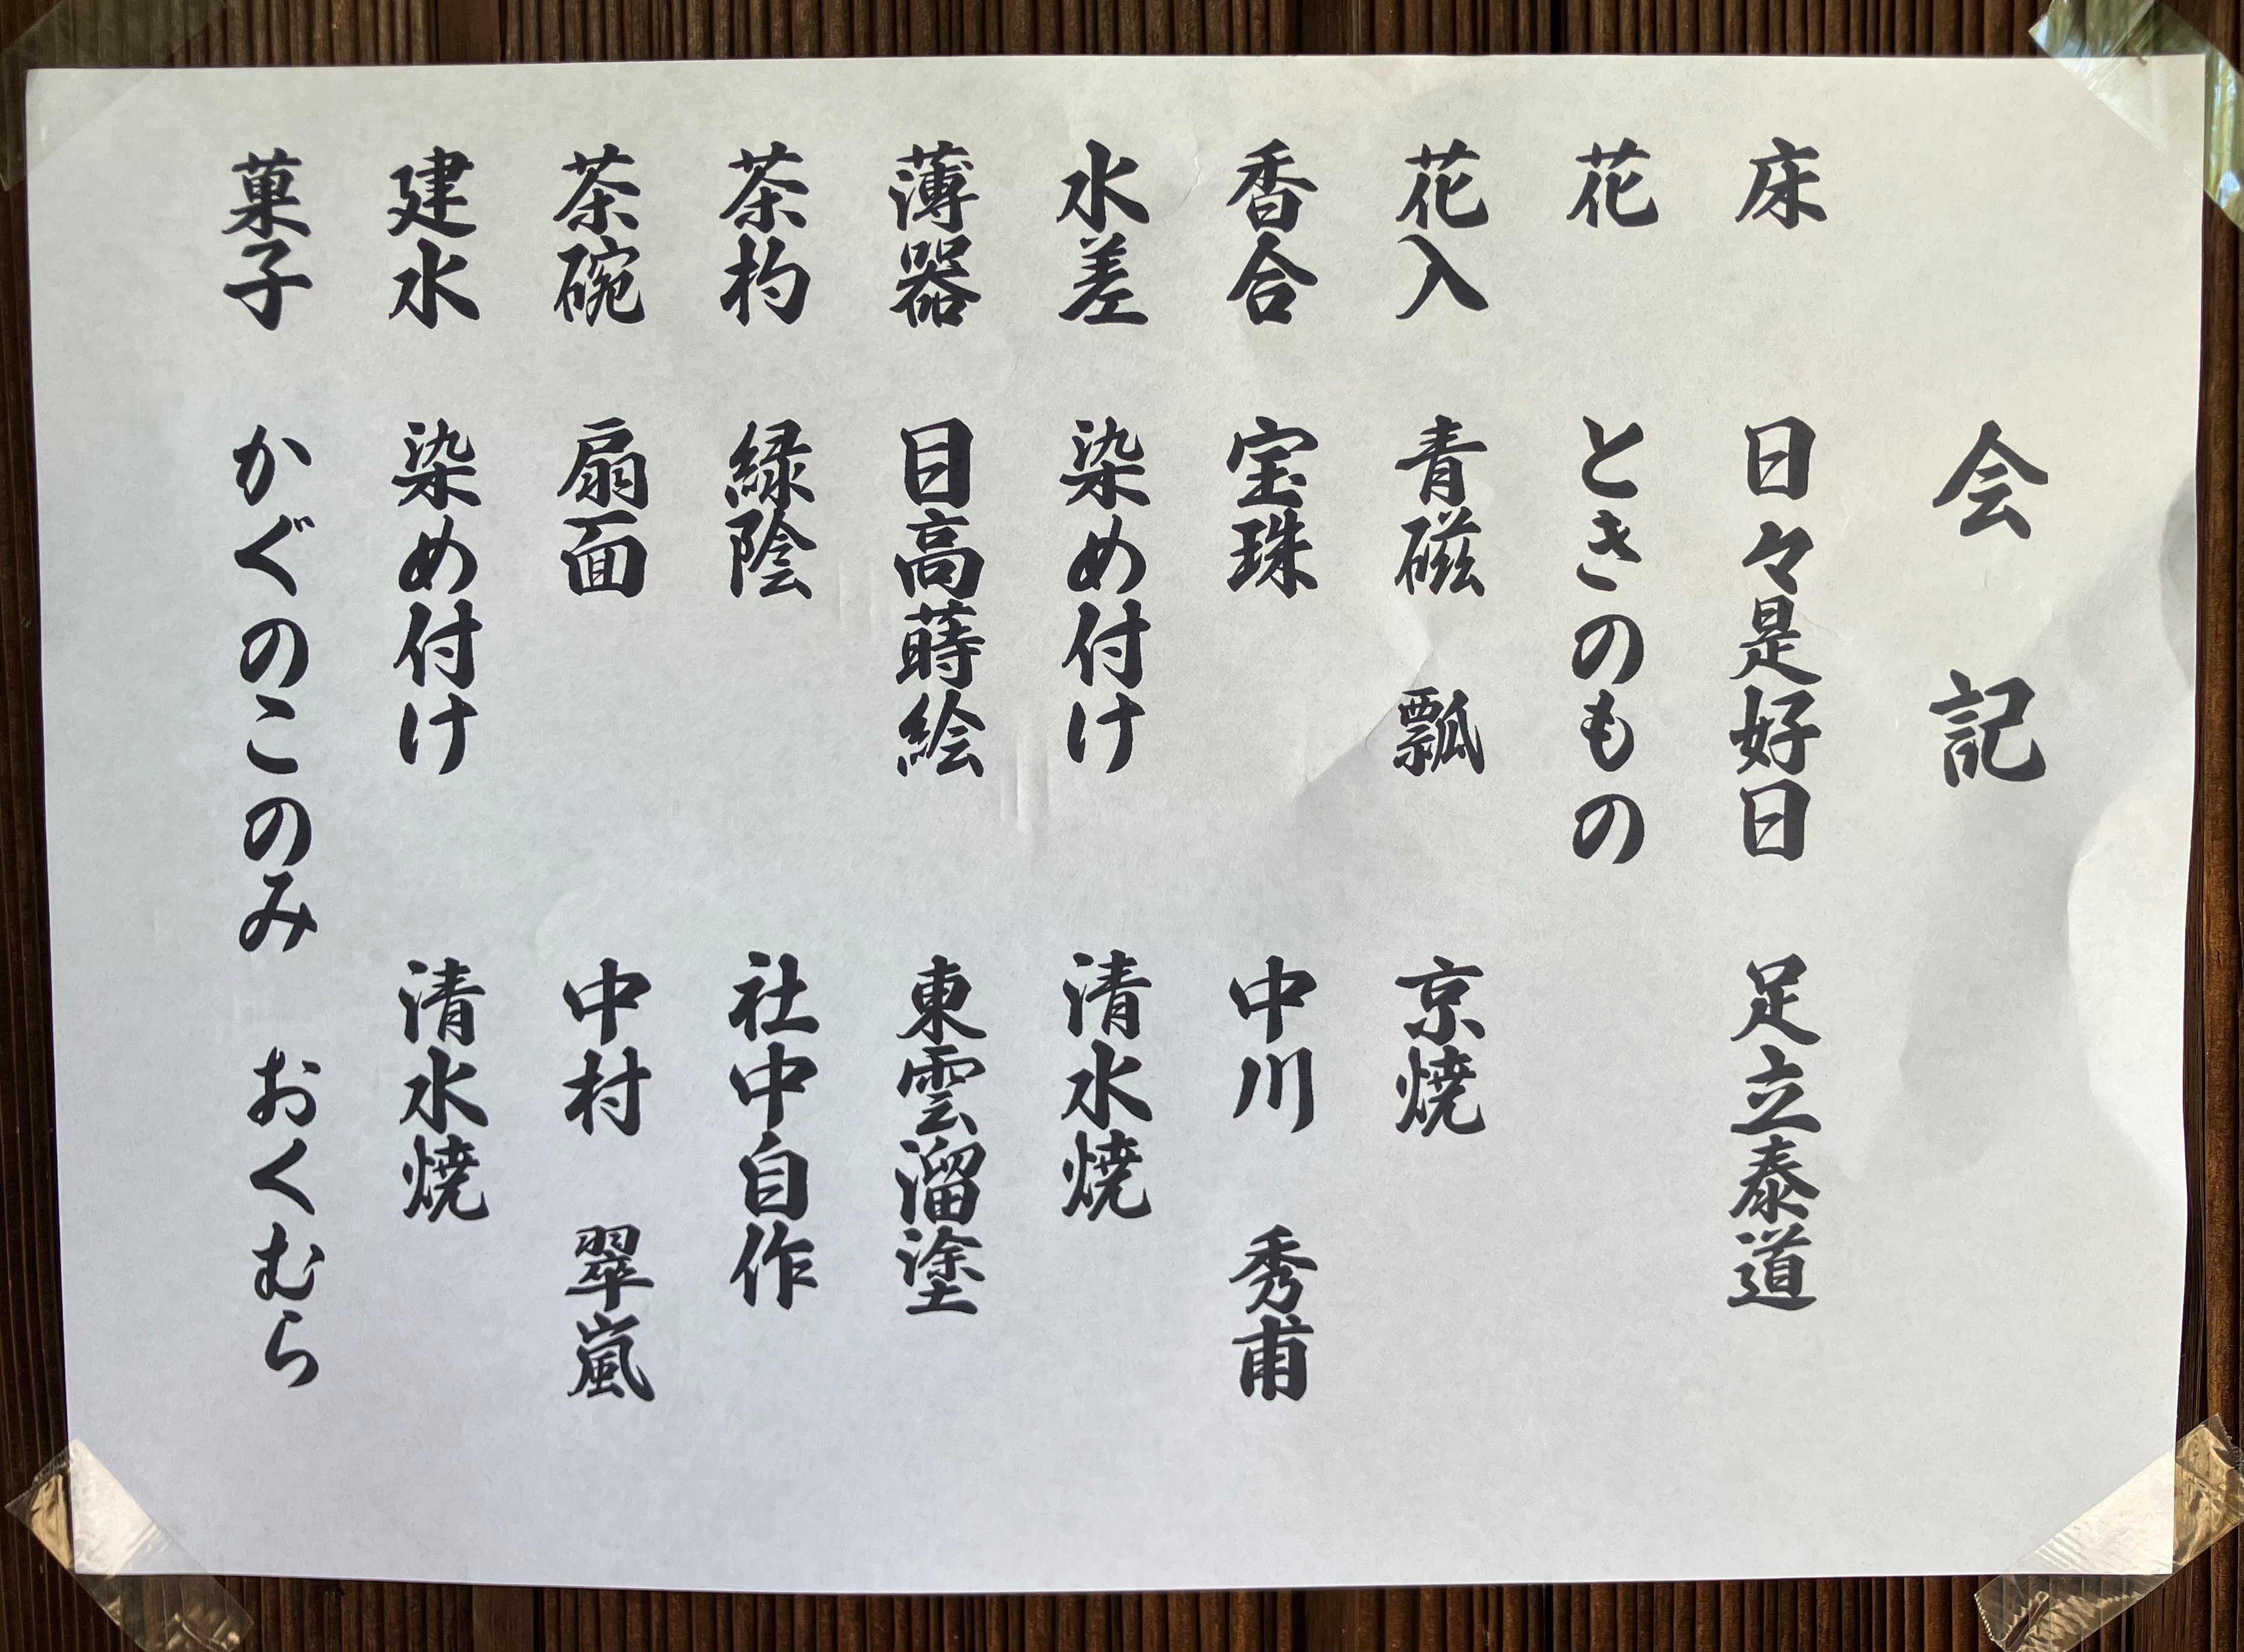 会 記
床 日々是好日 足立泰道
花 ときのもの
花入 青磁 瓢 京焼
香合 宝珠 中川 秀甫
水差 染め付け 清水焼
薄器 目高蒔絵 東雲溜塗
茶杓 緑陰 社中自作
茶碗 扇面 中村 翠嵐
建水 染め付け 清水焼
菓子 かぐのこのみ おくむら